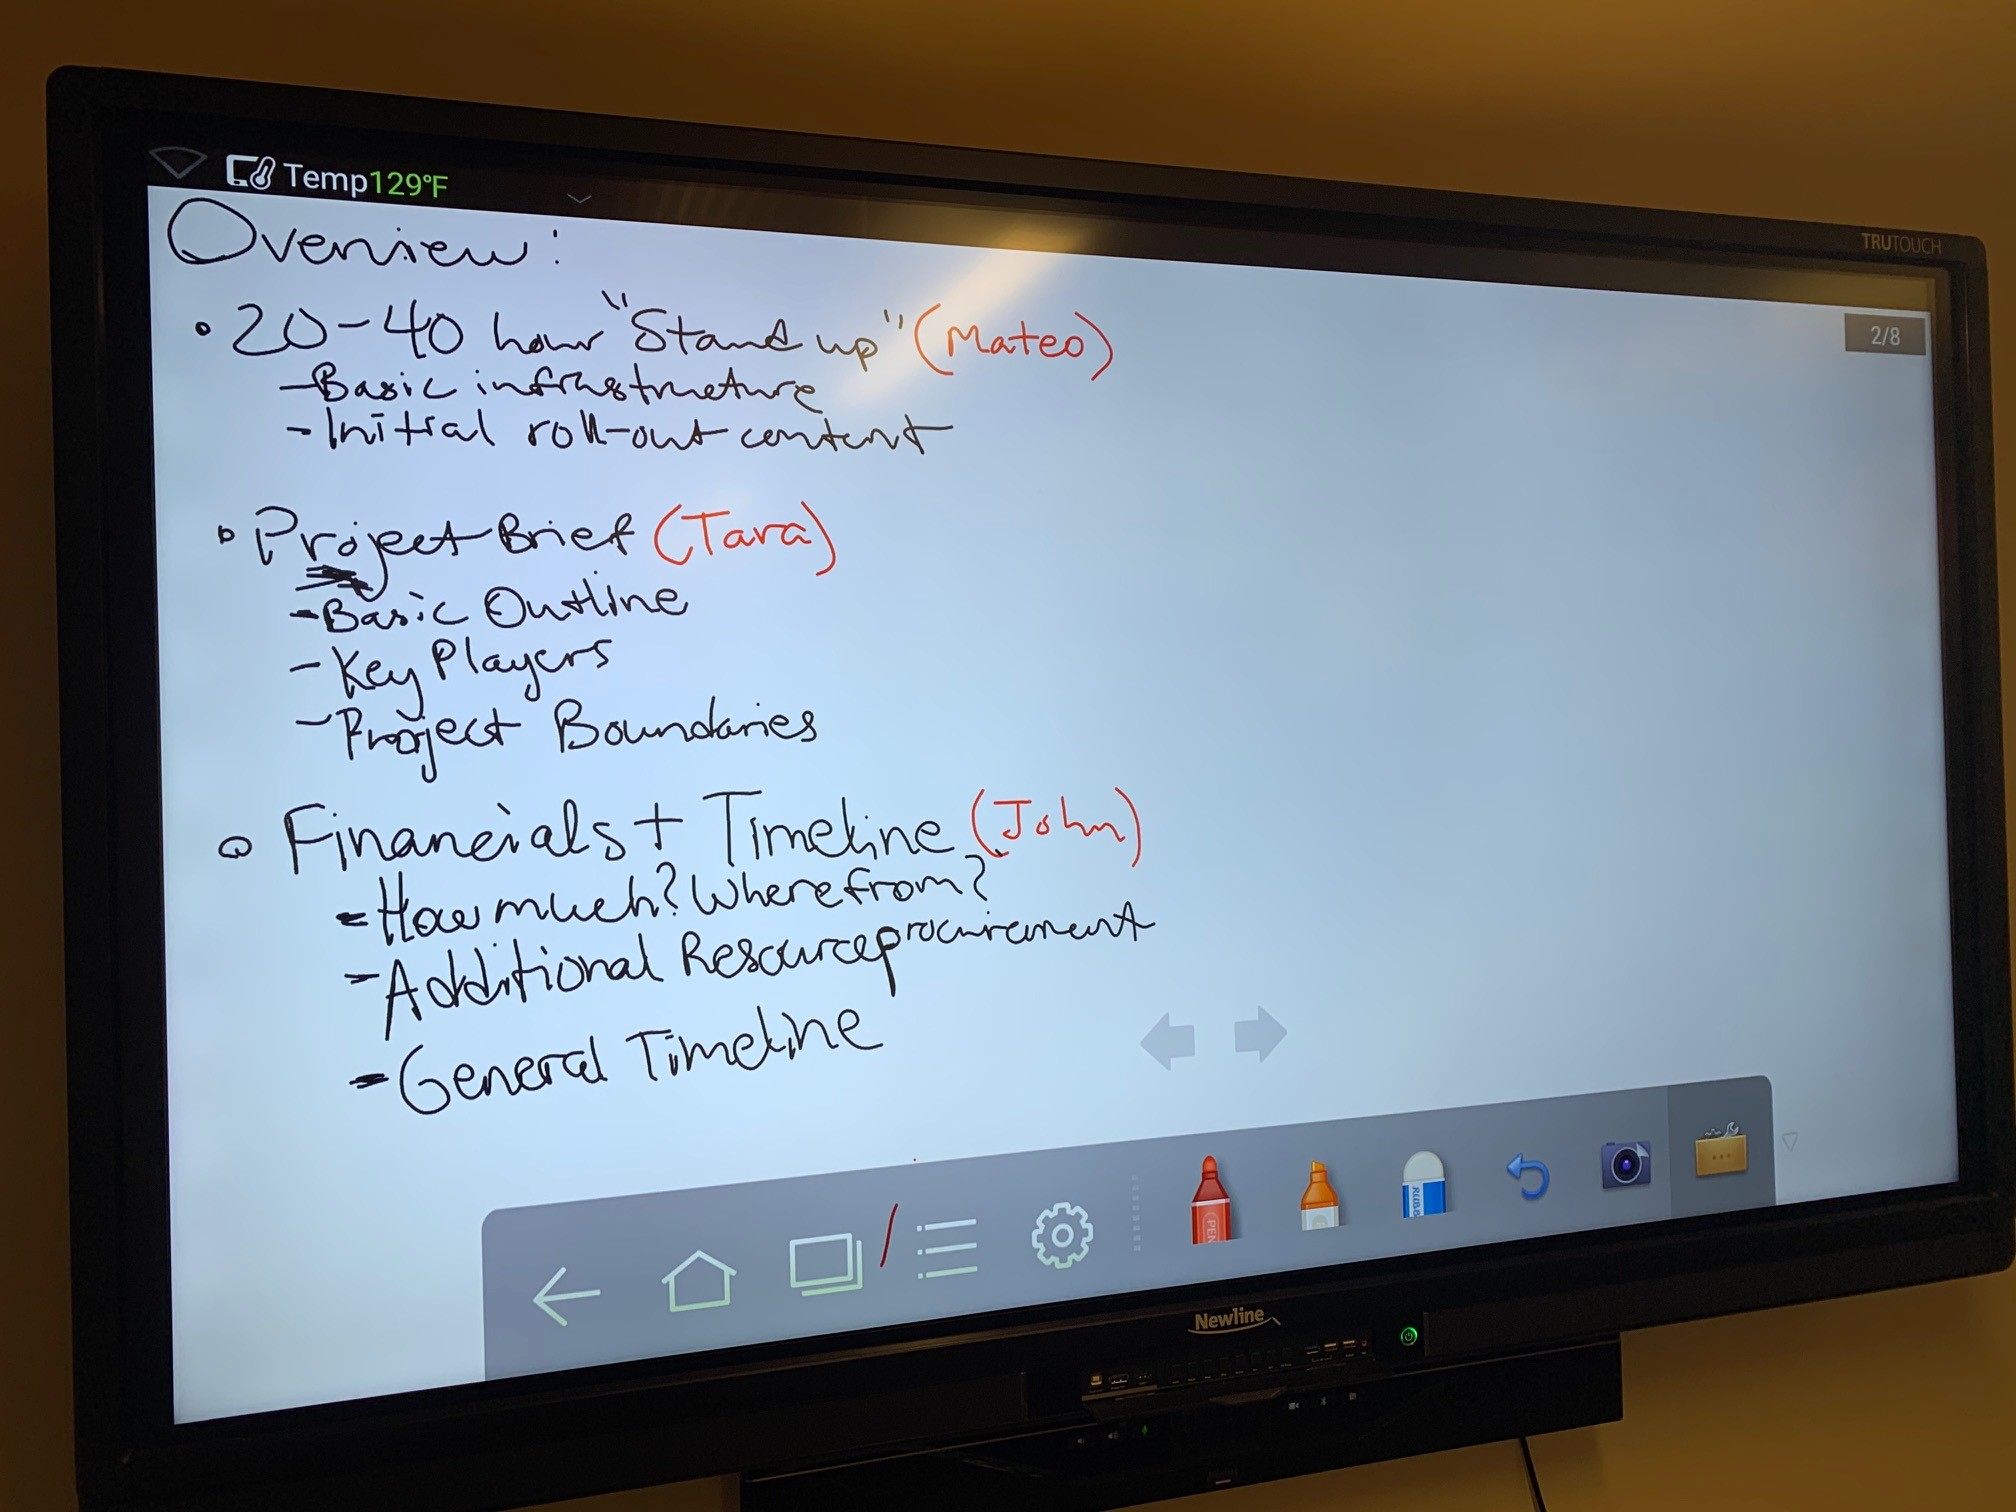 Temp129°F
TRUTOUCH
2/8
Overview:
• 20-40 hour "Stand up" (Mateo)
- Basic infrastructure
- Initial roll-out content
• Project Brief (Tara)
- Basic Outline
- Key Players
- Project Boundaries
• Financials + Timeline (John)
- How much? Where from?
- Additional Resource procurement
- General Timeline
PEN
Newline